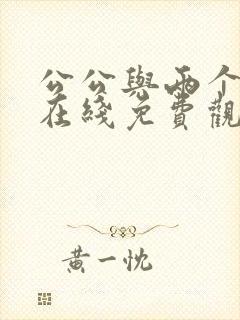 公公與兩个
在綫免費觀
黃一忱